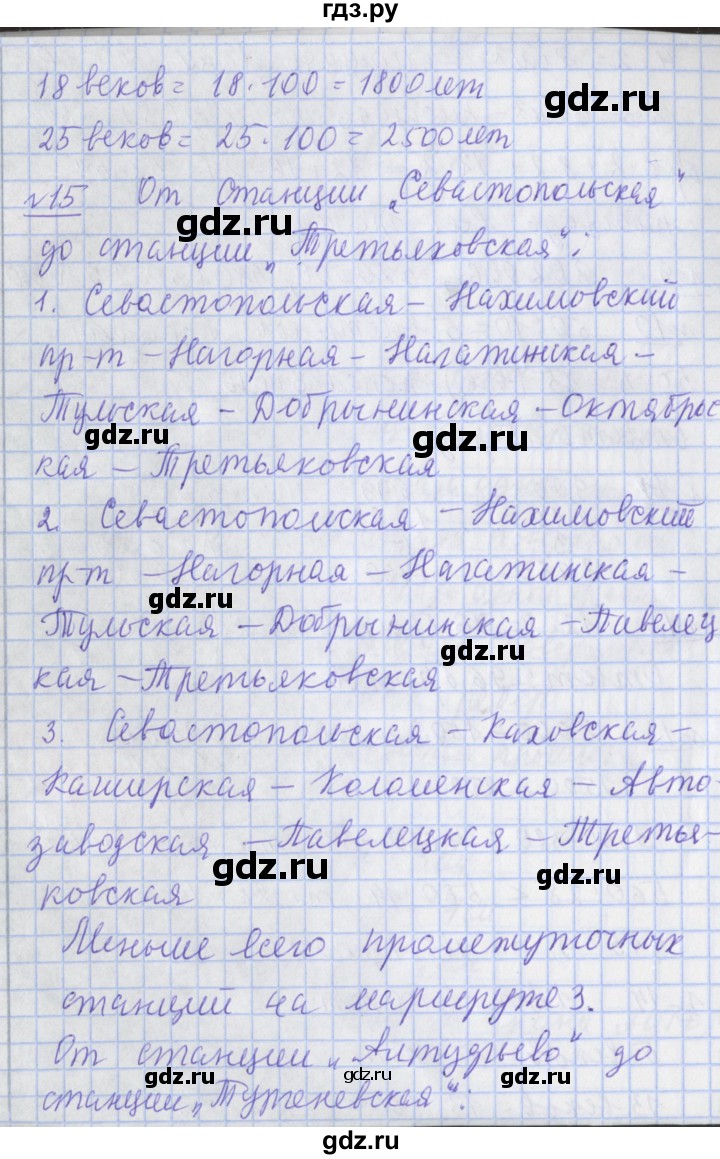 гдз.ру
18 веков = 18 · 100 = 1800 лет
25 веков = 25 · 100 = 2500 лет
№15 От станции „Севастопольская"
до станции „Третьяковская":
1. Севастопольская – Нахимовский
пр-т – Нагорная – Нагатинская –
Тульская – Добрынинская – Октябрьс
кая – Третьяковская
2. Севастопольская – Нахимовский
пр-т – Нагорная – Нагатинская –
Тульская – Добрынинская – Павелец
кая – Третьяковская
3. Севастопольская – Каховская –
Каширская – Коломенская – Авто-
заводская – Павелецкая – Третья-
ковская
Меньше всего промежуточных
станций на маршруте 3.
От станции „Алтудьево" до
станции „Тургеневская":
gdz.ru
gdz.ru
gdz.ru
gdz.ru
gdz.ru
gdz.ru
gdz.ru
gdz.ru
gdz.ru
gdz.ru
gdz.ru
gdz.ru
gdz.ru